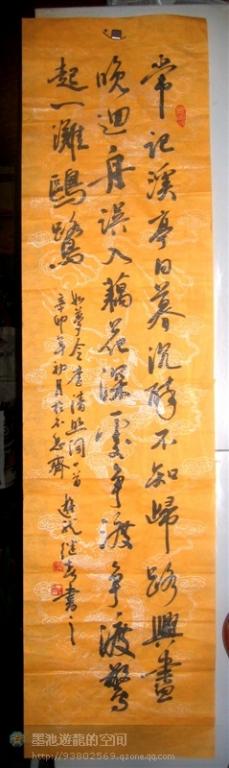 常记溪亭日暮沉醉不知歸路興盡
晚迴舟误入藕花深處争渡争渡驚
起一灘鷗鹭
如夢令李清照词一首
辛卯年初月於不
書之
墨池遊龍的空间
http://93802569.qzone.qq.com